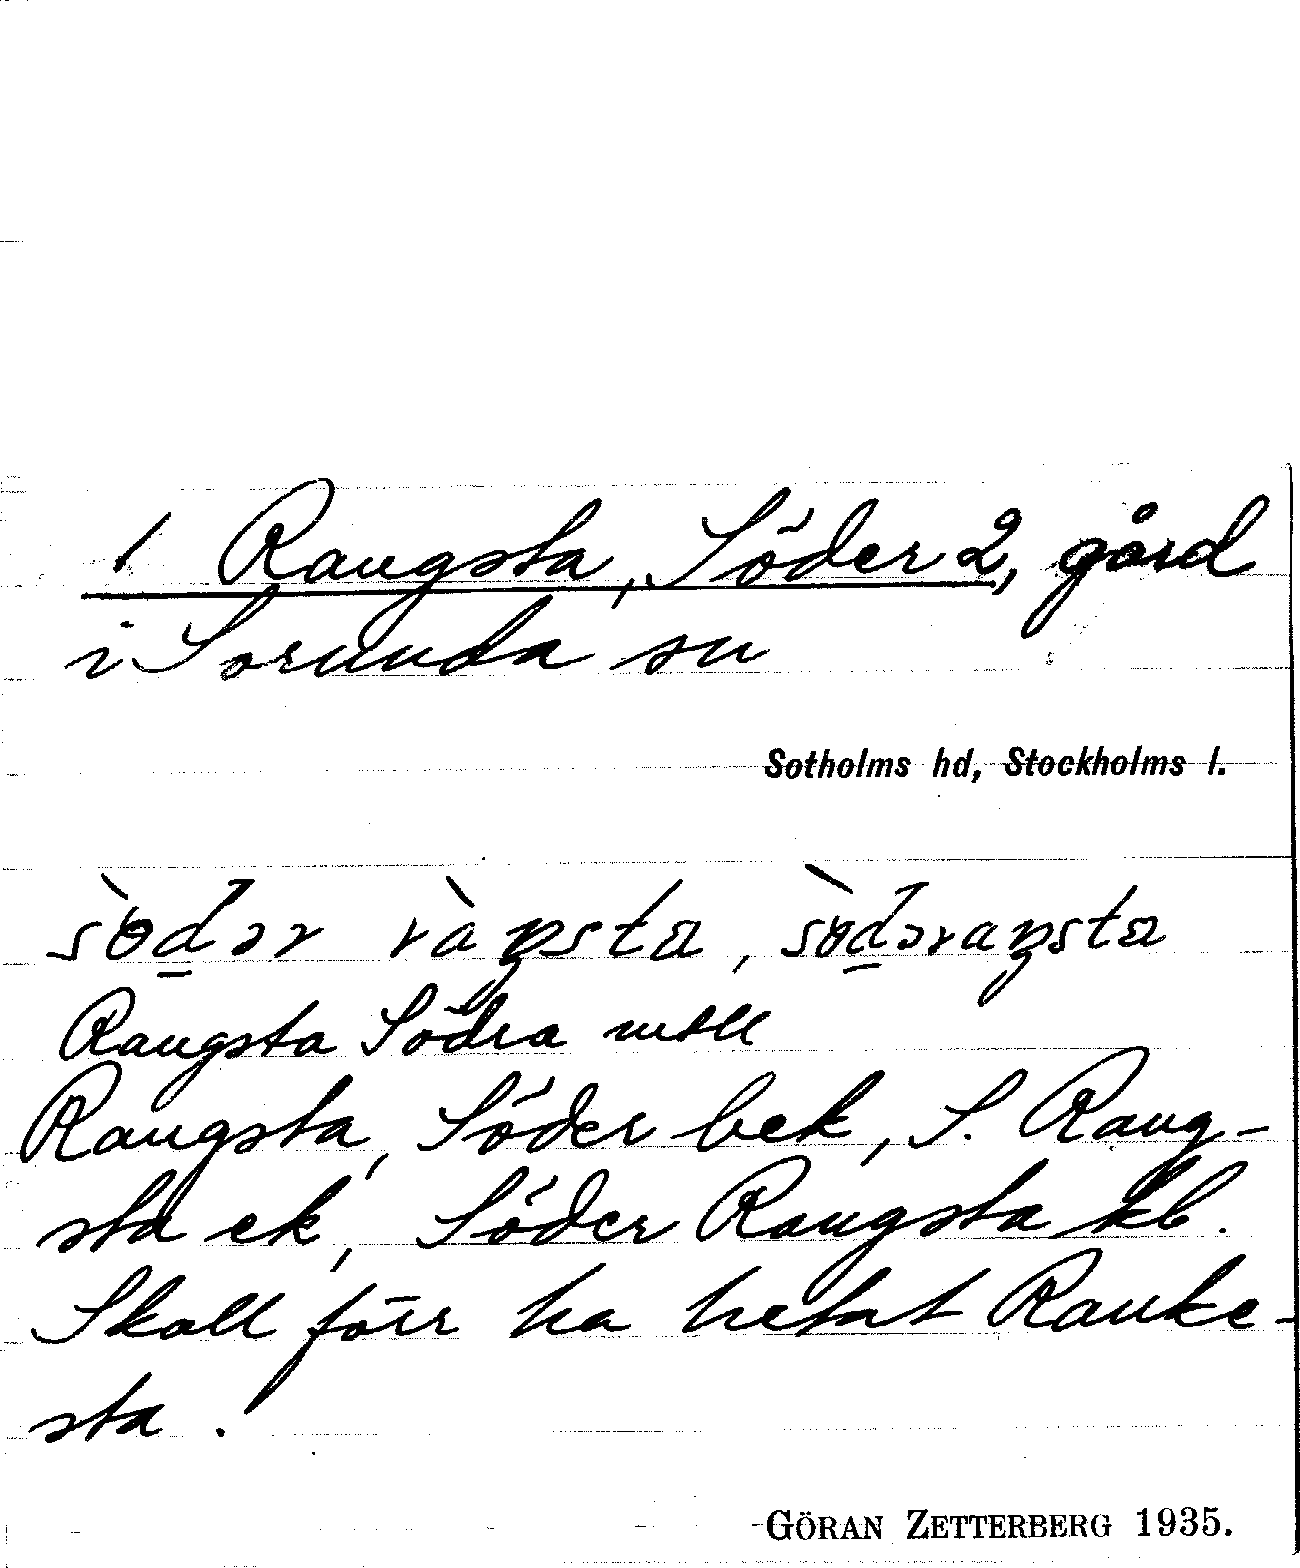 1 Rangsta, Söder 2, gård
i Sorunda sn
Sotholms hd, Stockholms l.
sö̀dər ràŋsta, sö̀dəraŋsta
Rangsta Södra
Rangsta, Söder bek, S. Rang-
sta ek, Söder Rangsta kb.
Skall förr ha hetat Ranke-
sta.
GÖRAN ZETTERBERG 1935.